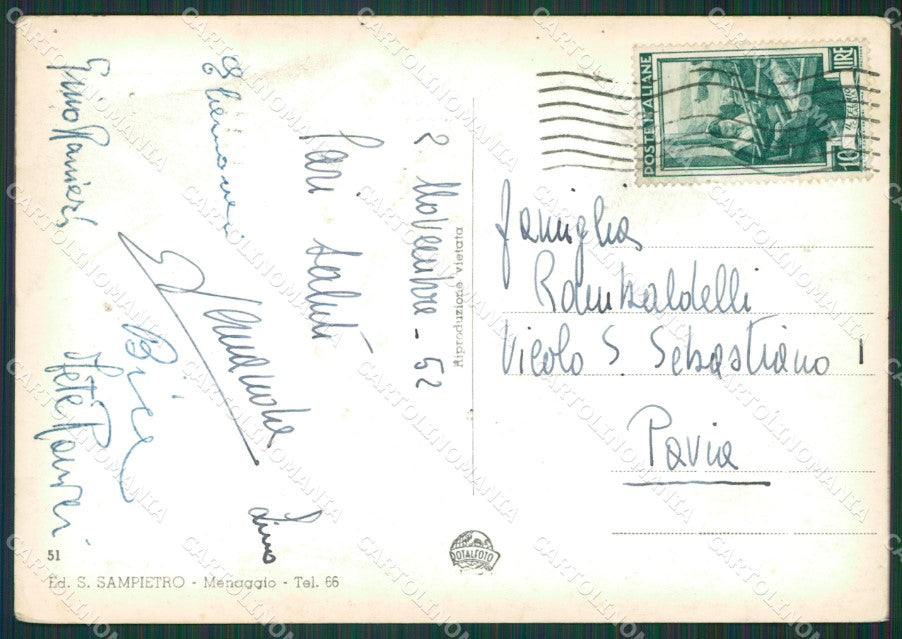 2 Novembre - 52
Cari saluti
Lino
Bice
Gino Ranieri
POSTE ITALIANE
LIRE
10
Riproduzione vietata
famiglia
Rambaldelli
Vicolo S. Sebastiano 1
Pavia
ROTALFOTO
51
Ed. S. SAMPIETRO - Menaggio - Tel. 66
CARTOLINOMANIA